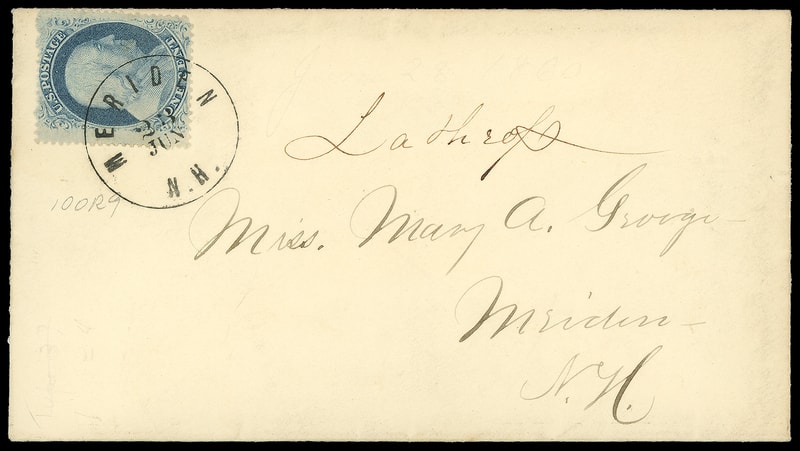 U.S. POSTAGE
ONE CENT
MERIDEN
23
JUN
N.H.
100R9
Lathrop
Miss. Mary A. George
Meriden
N.H.